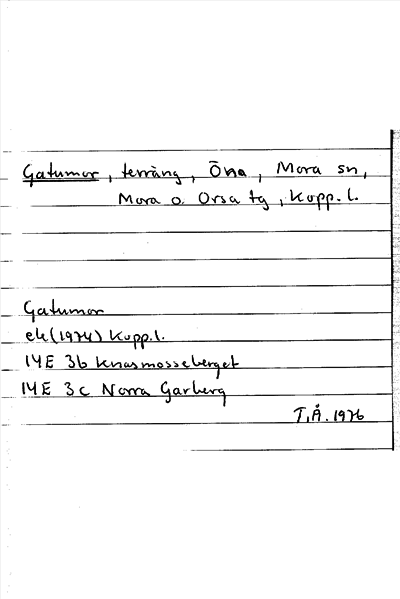 Gatumor, terräng, Öna, Mora sn,
Mora o. Orsa tg, Kopp. l.
Gatumor
ek (1974) Kopp.l.
14E 3b Knasmosseberget
14E 3c Norra Garberg
T.Å. 1976